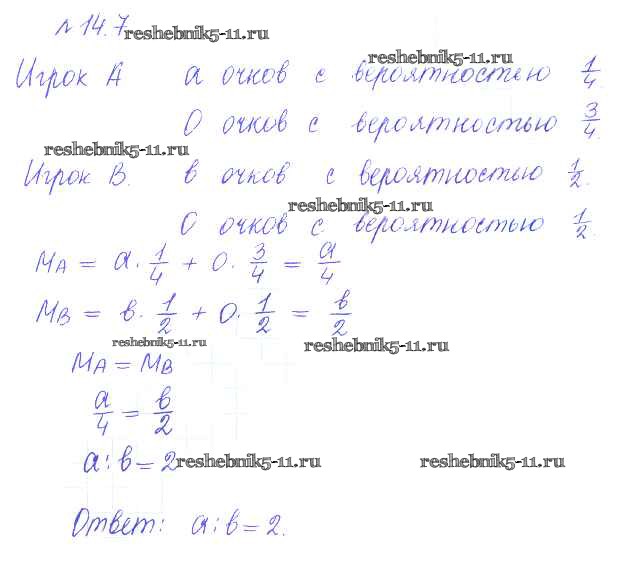 № 14.7
reshebnik5-11.ru
reshebnik5-11.ru
Игрок А а очков с вероятностью 1/4
0 очков с вероятностью 3/4.
reshebnik5-11.ru
Игрок В. в очков с вероятностью 1/2.
reshebnik5-11.ru
0 очков с вероятностью 1/2.
МА = а · 1/4 + 0 · 3/4 = а/4
МВ = в · 1/2 + 0 · 1/2 = в/2
reshebnik5-11.ru reshebnik5-11.ru
МА = МВ
а/4 = в/2
а : в = 2 reshebnik5-11.ru reshebnik5-11.ru
Ответ: а : в = 2.